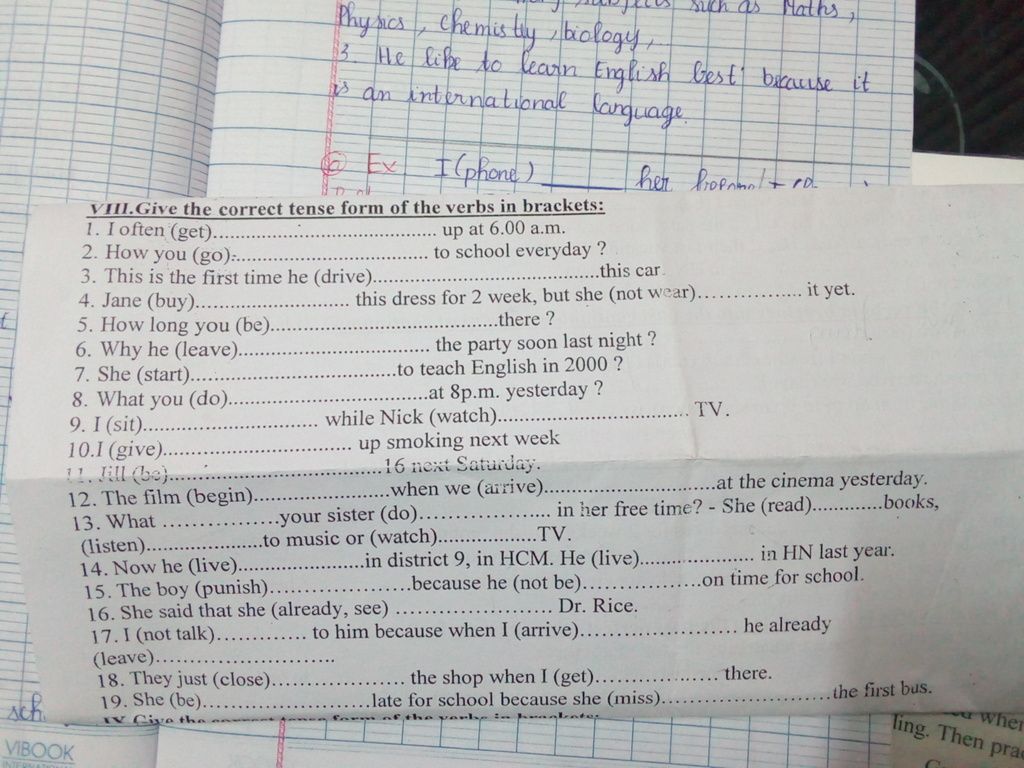 such as Maths,
Physics, chemistry, biology,
3. He like to learn English best because it
is an international language.
a Ex I (phone) ______ her
VIII.Give the correct tense form of the verbs in brackets:
1. I often (get)...................................... up at 6.00 a.m.
2. How you (go):................................. to school everyday ?
3. This is the first time he (drive).......................................this car.
4. Jane (buy)........................... this dress for 2 week, but she (not wear).................. it yet.
5. How long you (be).......................................there ?
6. Why he (leave)................................. the party soon last night ?
7. She (start)....................................to teach English in 2000 ?
8. What you (do)..................................at 8p.m. yesterday ?
9. I (sit).............................. while Nick (watch)................................. TV.
10.I (give)................................. up smoking next week
11. Jill (be).....................................16 next Saturday.
12. The film (begin)........................when we (arrive)..............................at the cinema yesterday.
13. What ....................your sister (do)....................... in her free time? - She (read).............books,
(listen)....................to music or (watch).................TV.
14. Now he (live)......................in district 9, in HCM. He (live).................... in HN last year.
15. The boy (punish).........................because he (not be).....................on time for school.
16. She said that she (already, see) ........................... Dr. Rice.
17. I (not talk)................ to him because when I (arrive)........................... he already
(leave)..............................
18. They just (close)....................... the shop when I (get)..................... there.
19. She (be).............................late for school because she (miss).............................the first bus.
IX Give the correct tense form of the verbs in brackets:
sch
VIBOOK
INTERNATIONAL
when
ling. Then prac